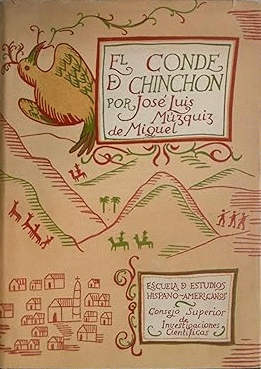 EL CONDE
D CHINCHON
POR José Luis
Múzquiz
de Miguel
ESCUELA D ESTUDIOS
HISPANO-AMERICANOS
Consejo Superior
de
Investigaciones
Científicas